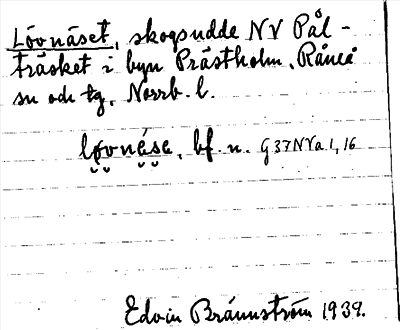 Lövnäset, skogsudde NV Pål-
träsket i byn Prästholm, Råneå
sn och tg, Norrb. l.
lövnése, bf. n. G37NVa.1,16
Edvin Brännström 1939.